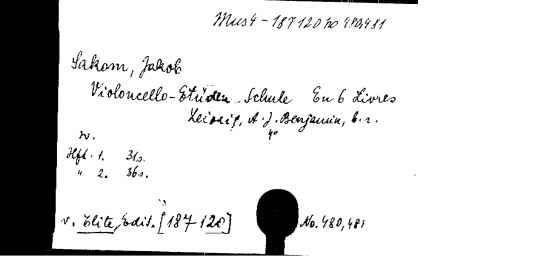 Mus 4 - 187 120 No 480,481
Sakom, Jakob
Violoncello-Etüden Schule En 6 Livres
Leipzig, A. J. Benjamin, b. r.
4°
w.
Hft. 1. 31s.
" 2. 36s.
v. Elite, Edit. [187 120] No. 480, 481